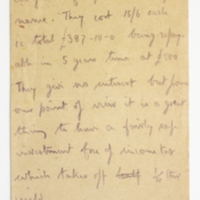 name. They cost 15/6 each
ie total £387-10-0 being repay-
able in 5 years time at £500
They give no interest but from
one point of view it is a great
thing to have a fairly safe
investment free of income tax
which takes off 1/2 this